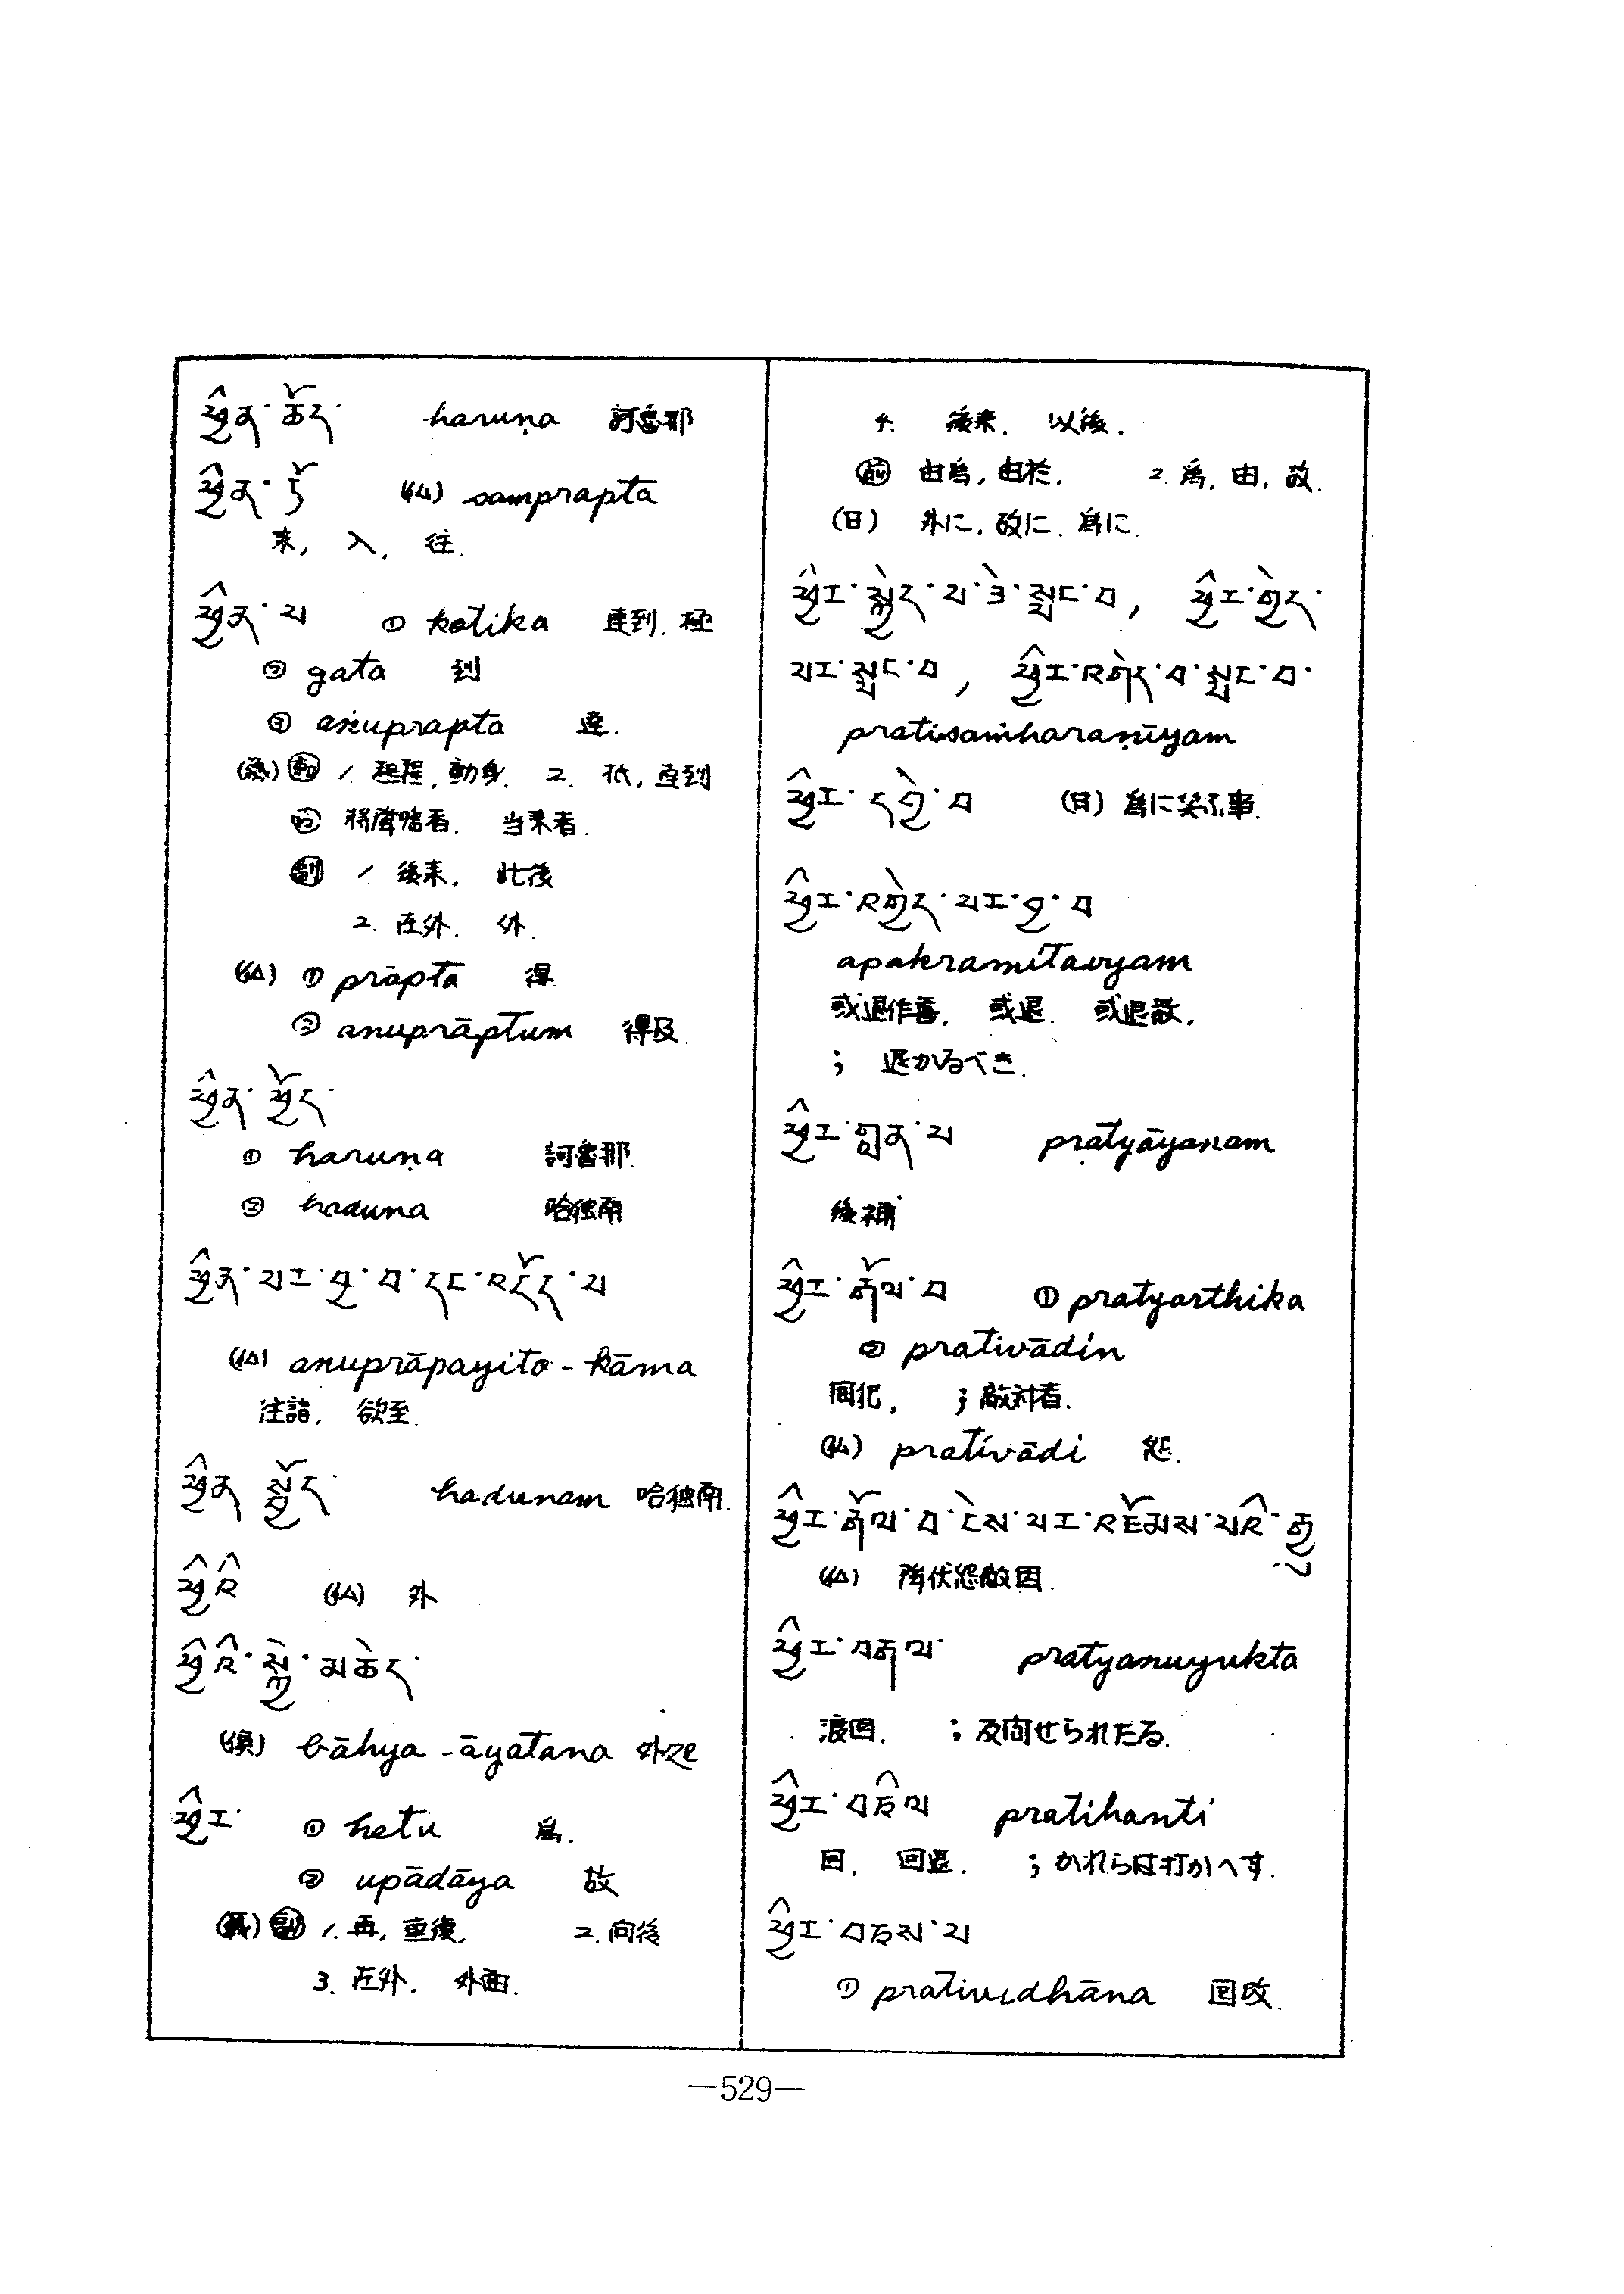 ཕྱིན་ཆོད་ haruṇa 訶魯那
ཕྱིན་ཏོ (仏) samprapta
来, 入, 往.
ཕྱིན་པ ① kotika 達到. 極
② gata 到
③ anuprapta 達.
1. 起程, 動身. 2. 抵, 達到
当来者.
副 1 後来. 此後
2. 在外. 外.
(仏) ① prāpta 得
② anuprāptum 得及.
ཕྱིན་ཕྱོད་
① haruṇa 訶魯那.
② haduna 哈德南
ཕྱིན་པར་བྱ་བ་དང་འདོད་པ
(仏) anuprāpayito-kāma
注詣, 欲至.
ཕྱིན སྤྱོད་ hadunam 哈德南.
ཕྱིའི (仏) 外
ཕྱིའི་སྐྱེ་མཆེད་
bāhya-āyatana 外処
ཕྱིར་ ① hetu 為.
② upādāya 故
副 1. 再, 重復, 2. 向後
3. 在外. 外面.
4. 後来. 以後.
由為, 由於, 2. 為, 由, 故.
(日) 外に, 故に. 為に.
ཕྱིར་སྐྱེད་པ་ཏེ་སྦྱང་བ, ཕྱིར་གྱེད་
པར་སྦྱང་བ, ཕྱིར་འགེད་བ་སྦྱང་བ་
pratisaṁharaṇīyam
ཕྱིར་དགྱེ་བ (日) 為に笑ふ事.
ཕྱིར་འགྱེད་པར་བྱ་བ
apakramitavyam
或退作善, 或退. 或退散,
; 退かるべき.
ཕྱིར་གླན་པ pratyāyanam
後補
ཕྱིར་རྒོལ་བ ① pratyarthika
② prativādin
; 敵対者.
(仏) prativādi 怨.
ཕྱིར་རྒོལ་བ་ངེས་པར་འཇོམས་པའི་རྒྱུ
(仏) 降伏怨敵因.
ཕྱིར་བརྒལ་ pratyanuyukta
渡回. ; 反問せられたる.
ཕྱིར་བརྡིལ pratihanti
回, 回退. ; かれらは打かへす.
ཕྱིར་བཅས་པ
① pratividhāna 回改.
—529—